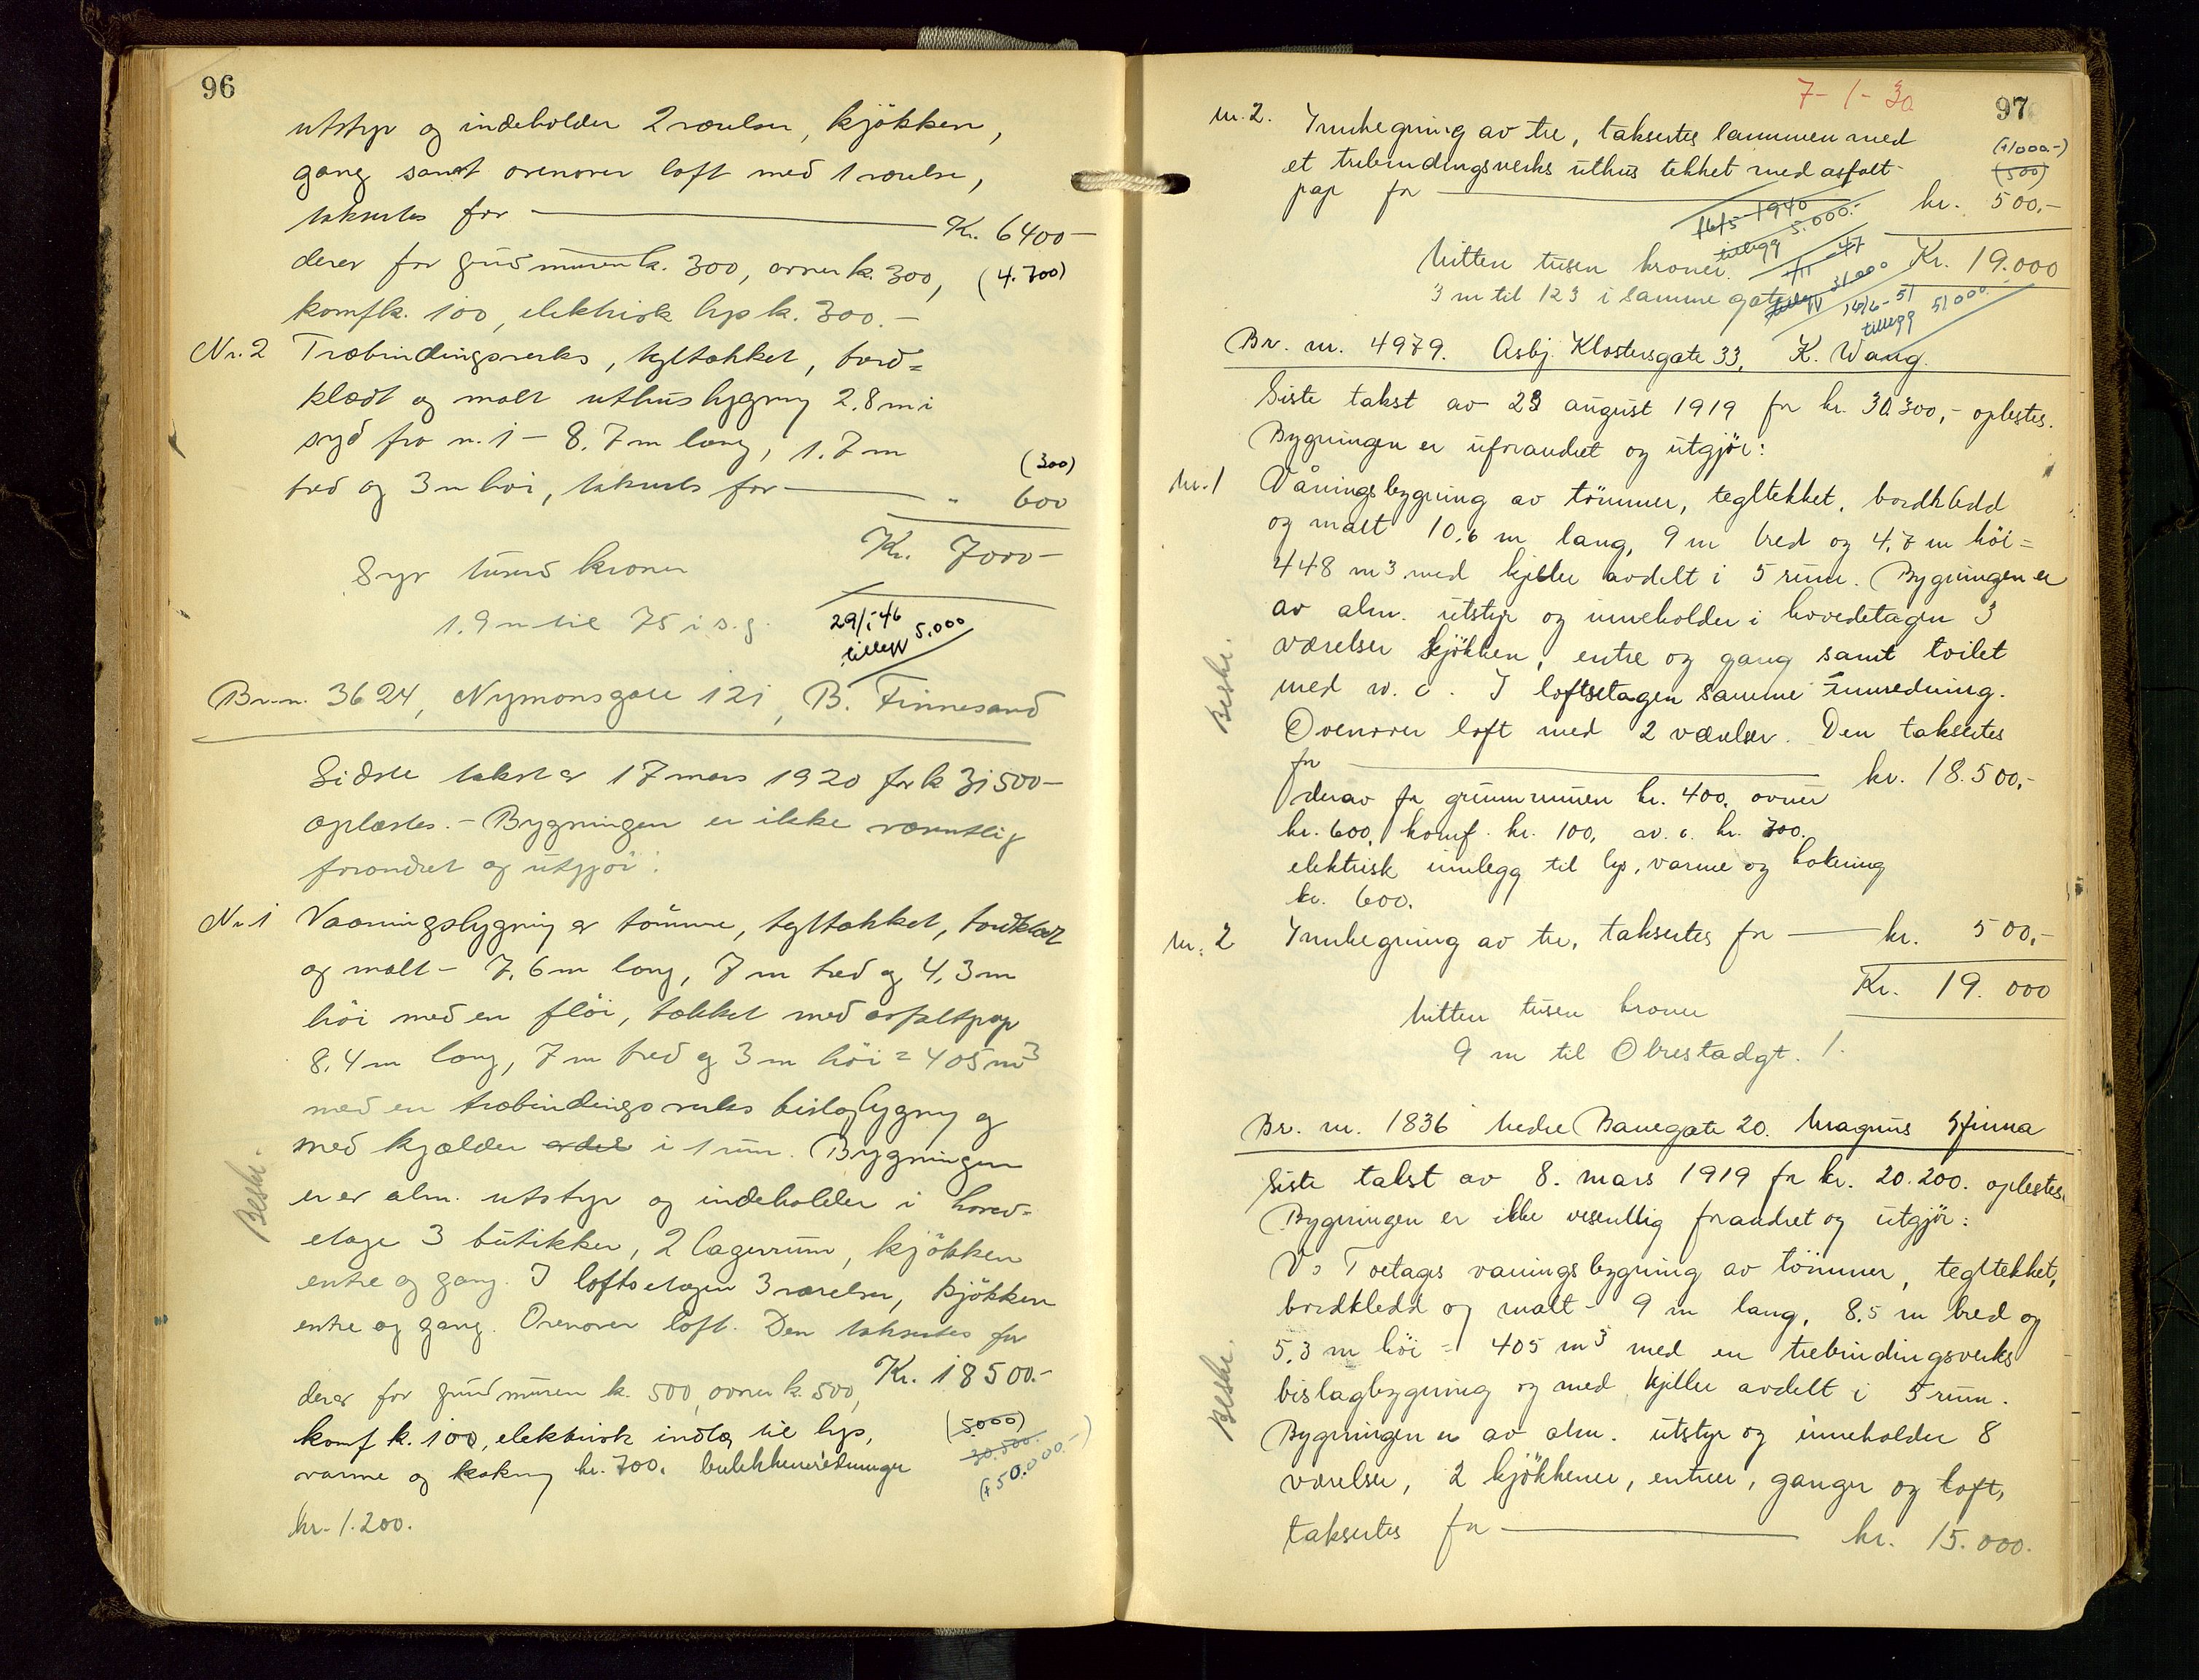 96
utstyr og indeholder 2 værelser, kjökken,
gang samt ovenover loft med 1 værelse,
takseres for — Kr. 6400—
derav for grundmuren k. 300, ovner k. 300, (4.700)
komf k. 100, elektrisk lys k. 300.—
Nr. 2 Træbindingsverks, tgltækket, bord=
klædt og malt uthusbygning 2.8 m i
syd fra n. 1 – 8.7 m lang, 1.7 m
(300)
bred og 3 m höi, takseres for — " 600
Kr. 7000—
Syv tusind kroner
1.9 m til 75 i s.g.
29/1-46
tillegg 5.000
Br. n. 3624, Nymansgate 121, B. Finnesand
Sidste takst av 17 mars 1920 for k 31500—
oplæstes. – Bygningen er ikke væsentlig
forandret og utgjör:
Nr 1 Vaaningsbygning av tömmer, tgltækket, bordklædt
og malt – 7,6 m lang, 7 m bred og 4,3 m
höi med en flöi, tækket med asfaltpap
8,4 m lang, 7 m bred og 3 m höi = 405 m³
med en træbindingsverks bislagbygning og
med kjælder avdelt i 1 rum. Bygningen
er av alm. utstyr og indeholder i hoved-
etage 3 butikker, 2 lagerrum, kjökken
entre og gang. I loftsetagen 3 værelser, kjökken
entre og gang. Ovenover loft. Den takseres for
Kr. 18500.-
derav for grundmuren k. 500, ovner k. 500,
komf k. 100, elektrisk indlæg til lys, (5.000)
varme og kokning kr. 700. butikkinnredninger 30.500.-
(+ 50.000.-)
kr. 1.200.
Beskr.
7-1-30
97
nr. 2. Innhegning av tre, takseres sammen med
(+1000.-)
et trebindingsverks uthus tekket med asfalt- (500)
pap for — kr. 500,-
16/5-1940
tillegg 5.000.-
Nitten tusen kroner. Kr. 19.000
1/11 -47
tillegg 31000
3 m til 123 i samme gate
16/6-51
tillegg 51000.
Br. nr. 4979. Asbj. Klostersgate 33, K. Wang.
Siste takst av 23 august 1919 for kr. 30.300,- oplestes.
Bygningen er uforandret og utgjör:
nr. 1 Våningsbygning av tömmer, tegltekket, bordkledd
og malt 10,6 m lang, 9 m bred og 4,7 m höi =
448 m³ med kjeller avdelt i 5 rum. Bygningen er
av alm. utstyr og inneholder i hovedetagen 3
værelser kjökken, entre og gang samt toilet
med w. c. I loftsetagen samme innredning.
Ovenover loft med 2 værelser. Den takseres
for — kr. 18.500,-
derav for grunnmuren kr. 400, ovner
kr. 600, komf. kr. 100, w. c. kr. 300.
elektrisk innlegg til lys, varme og kokning
kr. 600.
nr. 2 Innhegning av tre, takseres for — kr. 500,-
Kr. 19.000
Nitten tusen kroner
9 m til Obrestadgt. 1.
Beskr.
Br. nr. 1836 Nedre Banegate 20. Magnus Gfinna
Siste takst av 8. mars 1919 for kr. 20.200. oplestes.
Bygningen er ikke vesentlig forandret og utgjör:
Toetages våningsbygning av tömmer, tegltekket,
bordkledd og malt – 9 m lang, 8,5 m bred og
5,3 m höi = 405 m³ med en trebindingsverks
bislagbygning og med kjeller avdelt i 5 rum.
Bygningen er av alm. utstyr og inneholder 8
værelser, 2 kjökkener, entreer, ganger og loft,
takseres for — kr. 15.000.
Beskr.